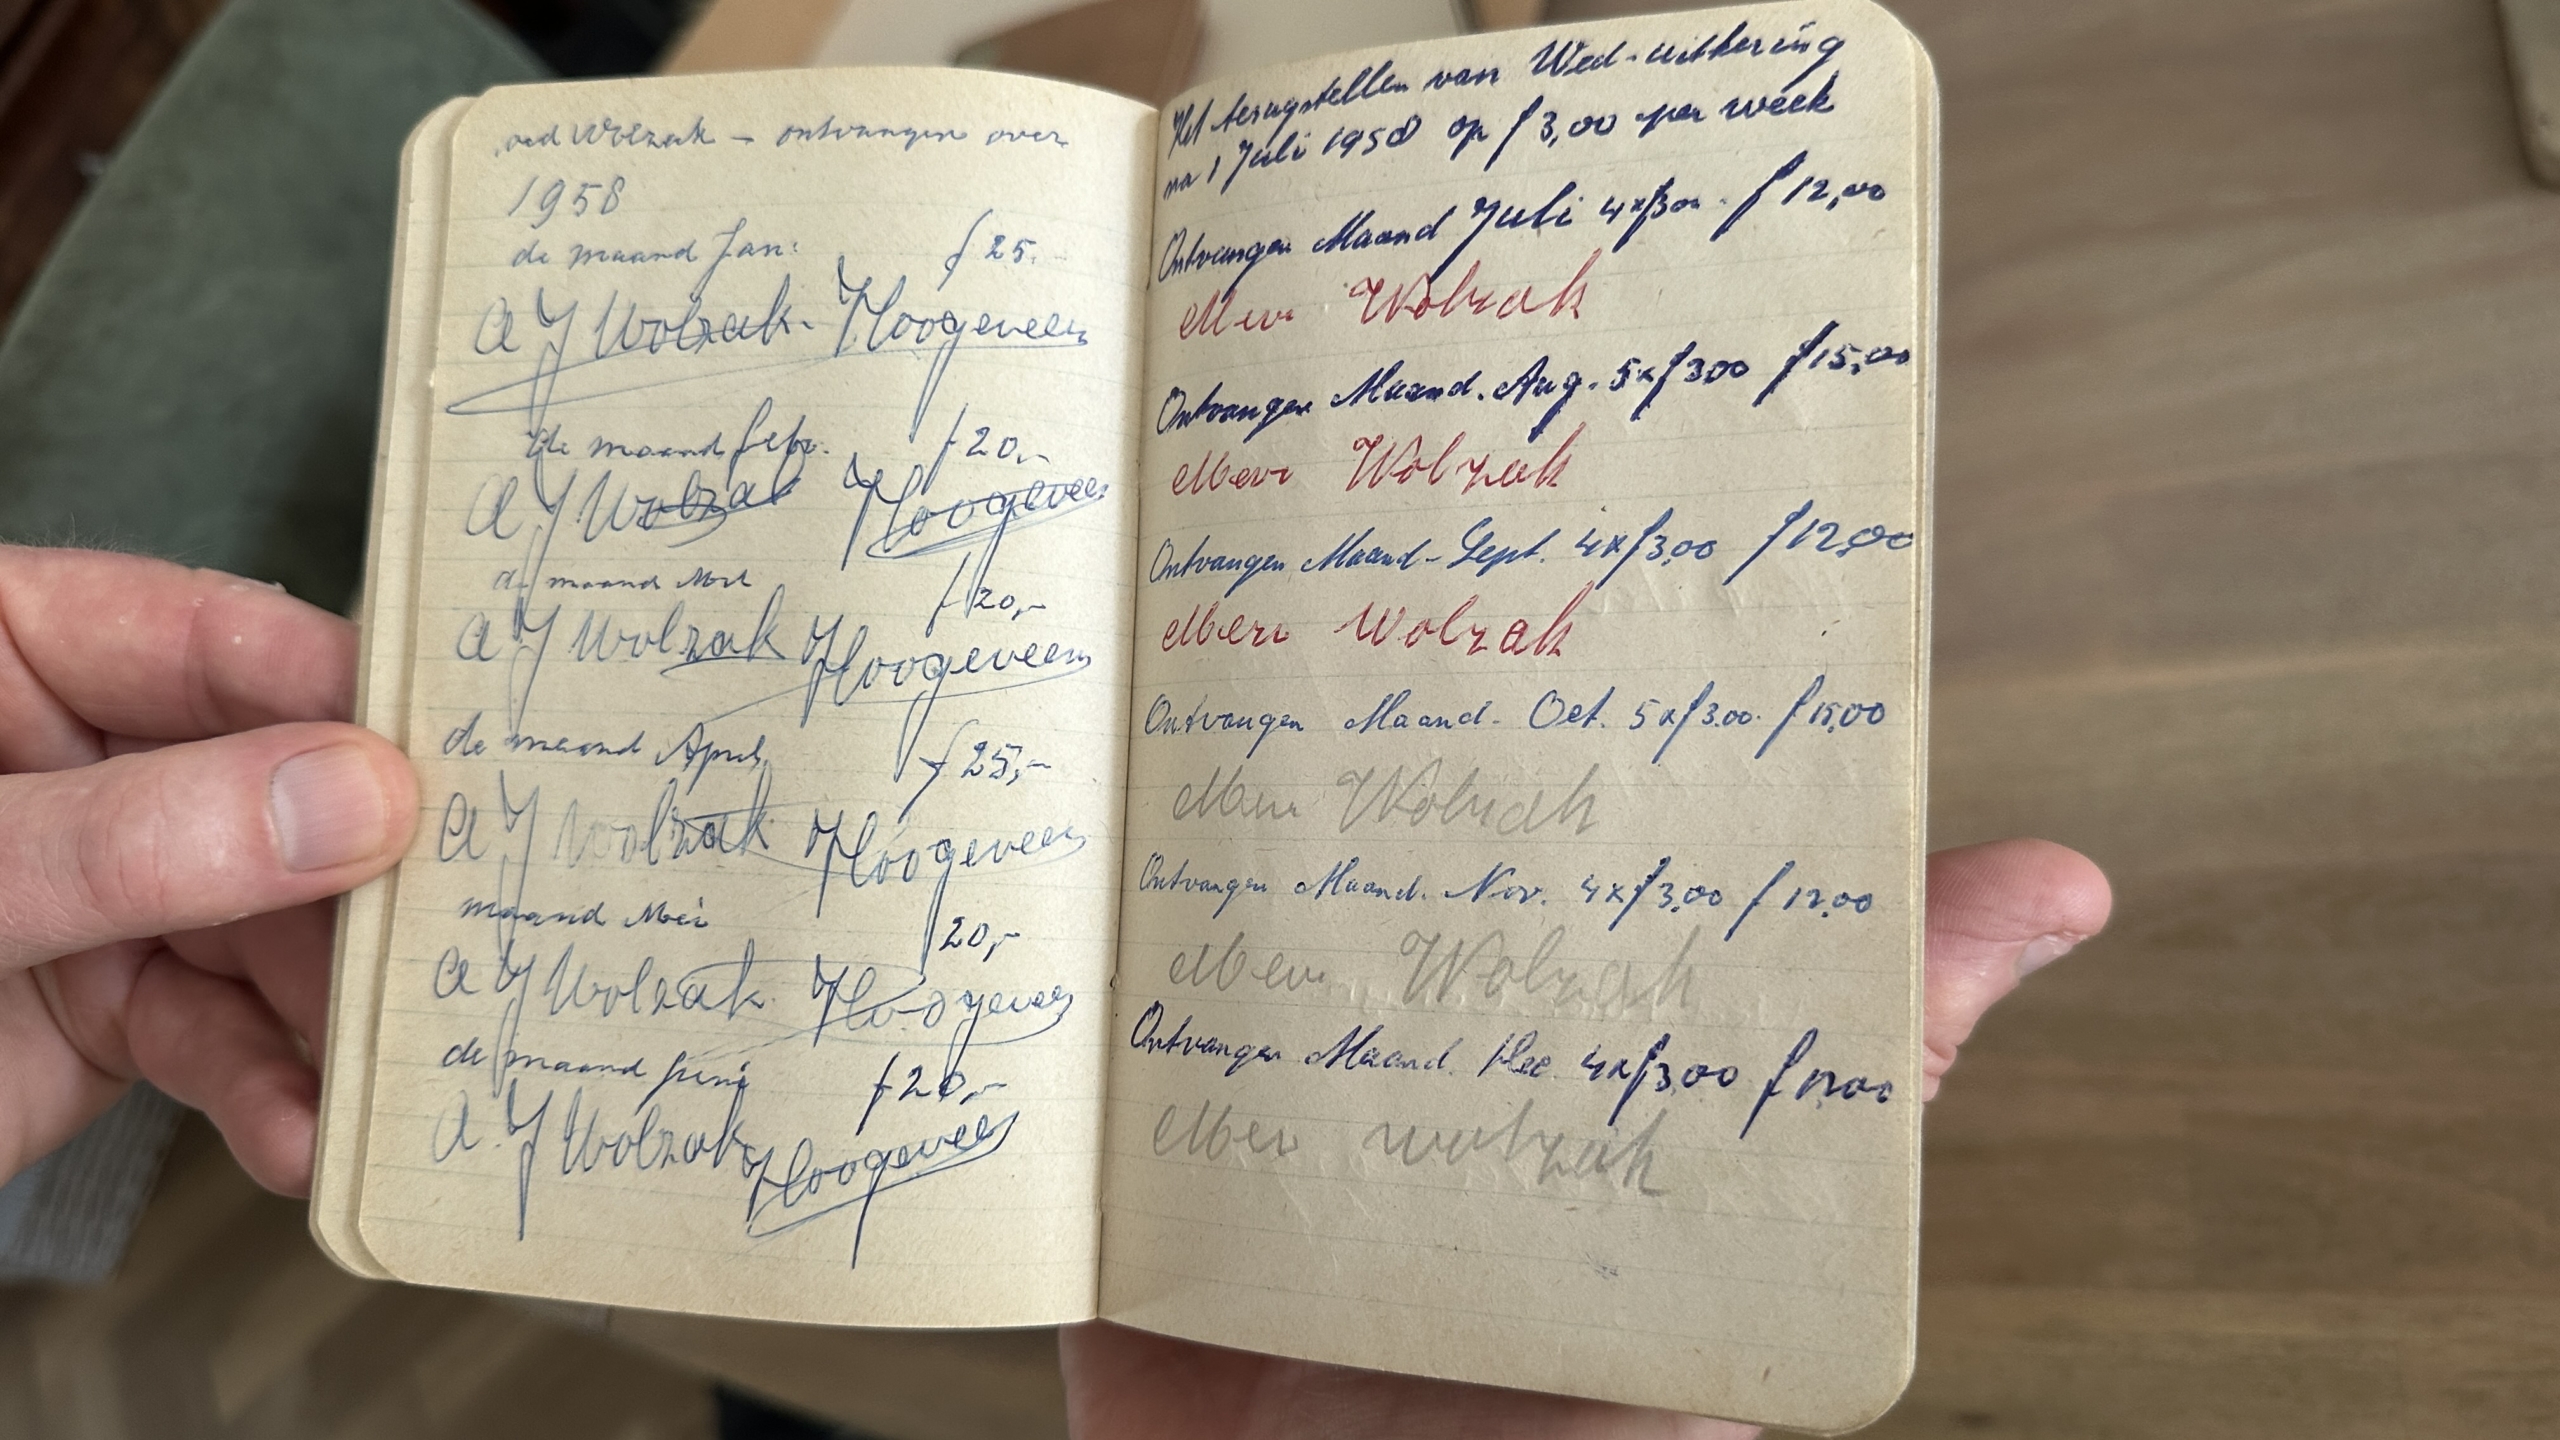 wed Wolzak - ontvangen over
1958
de maand Jan: f 25.-
A J Wolzak-Hoogeveen
de maand Febr. f 20,-
A J Wolzak Hoogeveen
de maand Mrt f 20,-
A J Wolzak Hoogeveen
de maand April f 25,-
A J Wolzak Hoogeveen
maand Mei 20,-
A J Wolzak Hoogeveen
de maand Juni f 20,-
A J Wolzak Hoogeveen
Het terugstellen van Wed-uitkering
na 1 Juli 1958 op f 3,00 per week
Ontvangen Maand Juli 4xf300 f 12,00
Mevr Wolzak
Ontvangen Maand. Aug. 5xf300 f15,00
Mevr Wolzak
Ontvangen Maand-Sept. 4xf3,00 f12,00
Mevr Wolzak
Ontvangen Maand- Oct. 5xf3.00. f15,00
Mevr Wolzak
Ontvangen Maand. Nov. 4xf3,00 f 12,00
Mevr Wolzak
Ontvangen Maand. Dec. 4xf3,00 f12,00
Mevr Wolzak